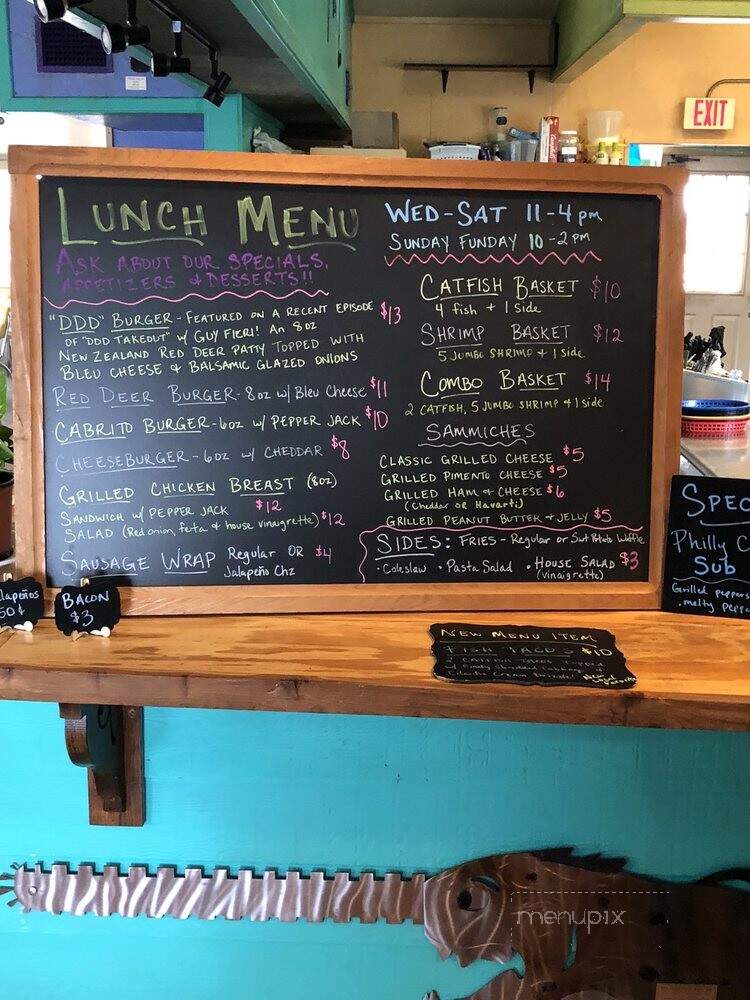 EXIT
LUNCH MENU
ASK ABOUT OUR SPECIALS,
APPETIZERS & DESSERTS!!
"DDD" BURGER - FEATURED ON A RECENT EPISODE $13
OF "DDD TAKEOUT" W/ GUY FIERI! AN 8OZ
NEW ZEALAND RED DEER PATTY TOPPED WITH
BLEU CHEESE & BALSAMIC GLAZED ONIONS
RED DEER BURGER - 8OZ W/ BLEU CHEESE $11
CABRITO BURGER - 6OZ W/ PEPPER JACK $10
CHEESEBURGER - 6OZ W/ CHEDDAR $8
GRILLED CHICKEN BREAST (8OZ)
SANDWICH W/ PEPPER JACK $12
SALAD (Red onion, feta & house vinaigrette) $12
SAUSAGE WRAP Regular OR $4
Jalapeño Chz
WED-SAT 11-4 pm
SUNDAY FUNDAY 10-2 PM
CATFISH BASKET $10
4 fish + 1 side
SHRIMP BASKET $12
5 JUMBO SHRIMP + 1 SIDE
COMBO BASKET $14
2 CATFISH, 5 JUMBO SHRIMP + 1 SIDE
SAMMICHES
CLASSIC GRILLED CHEESE $5
GRILLED PIMENTO CHEESE $5
GRILLED HAM & CHEESE $6
(Cheddar OR Havarti)
GRILLED PEANUT BUTTER & JELLY $5
SIDES: FRIES - Regular or Swt Potato Waffle
· Coleslaw · Pasta Salad · HOUSE SALAD $3
(vinaigrette)
SPEC
Philly C
Sub
Grilled peppers
melty Peppe
alapeños
50¢
BACON
$3
NEW MENU ITEM
FISH TACOS $10
2 CATFISH TACOS topped
Cilantro Cream
menupix